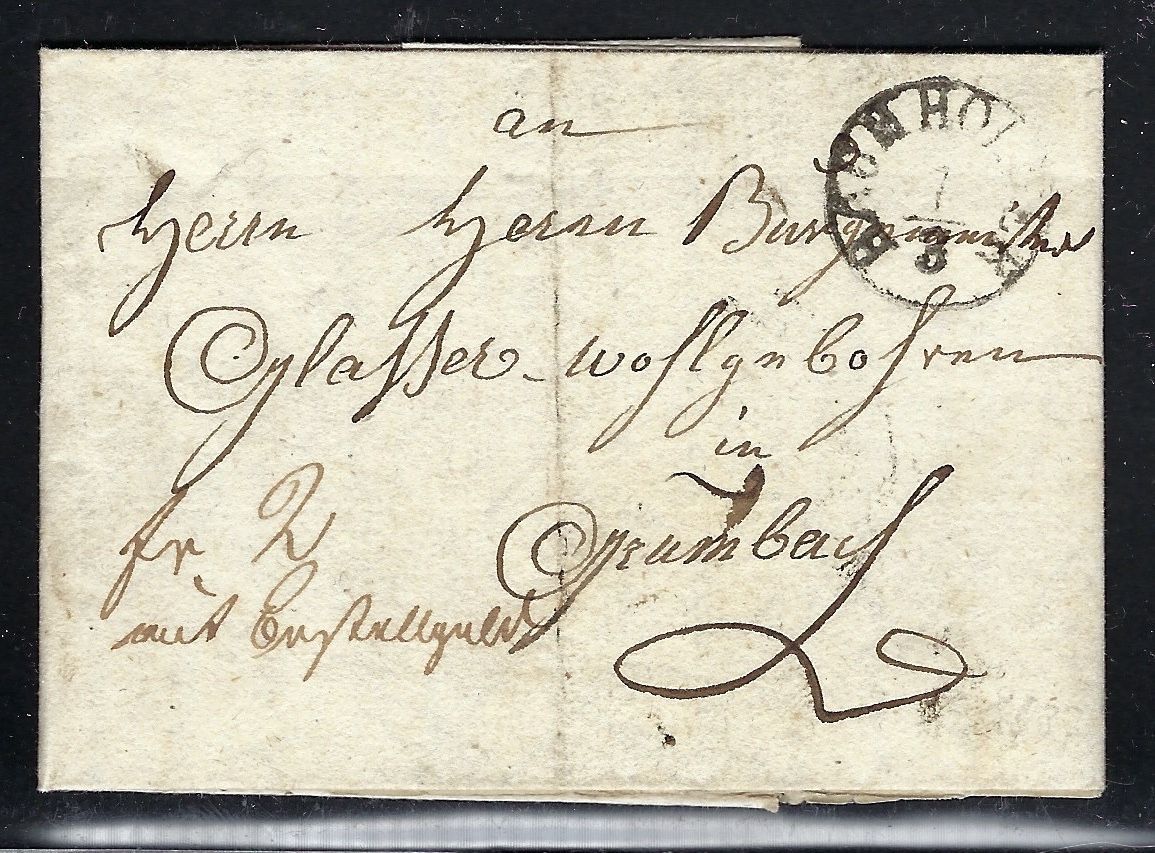 an
Herrn Herrn Burgemeister
Glasser wohlgebohren
in
Grumbach
fr 2
mit Bestellgeld
1
8